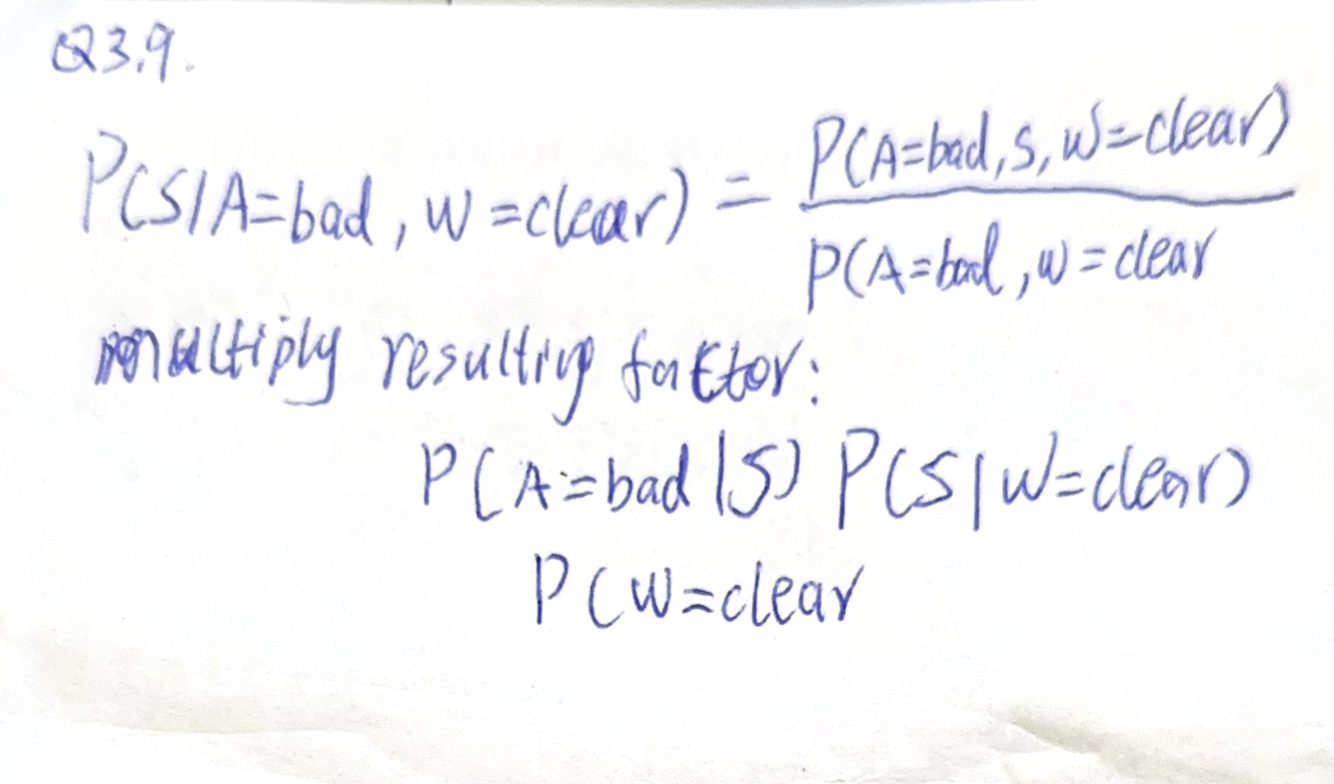 Q3.9.
P(S|A=bad, W=clear) = P(A=bad, S, W=clear) / P(A=bad, W=clear
multiply resulting factor:
P(A=bad|S) P(S|W=clear)
P(W=clear